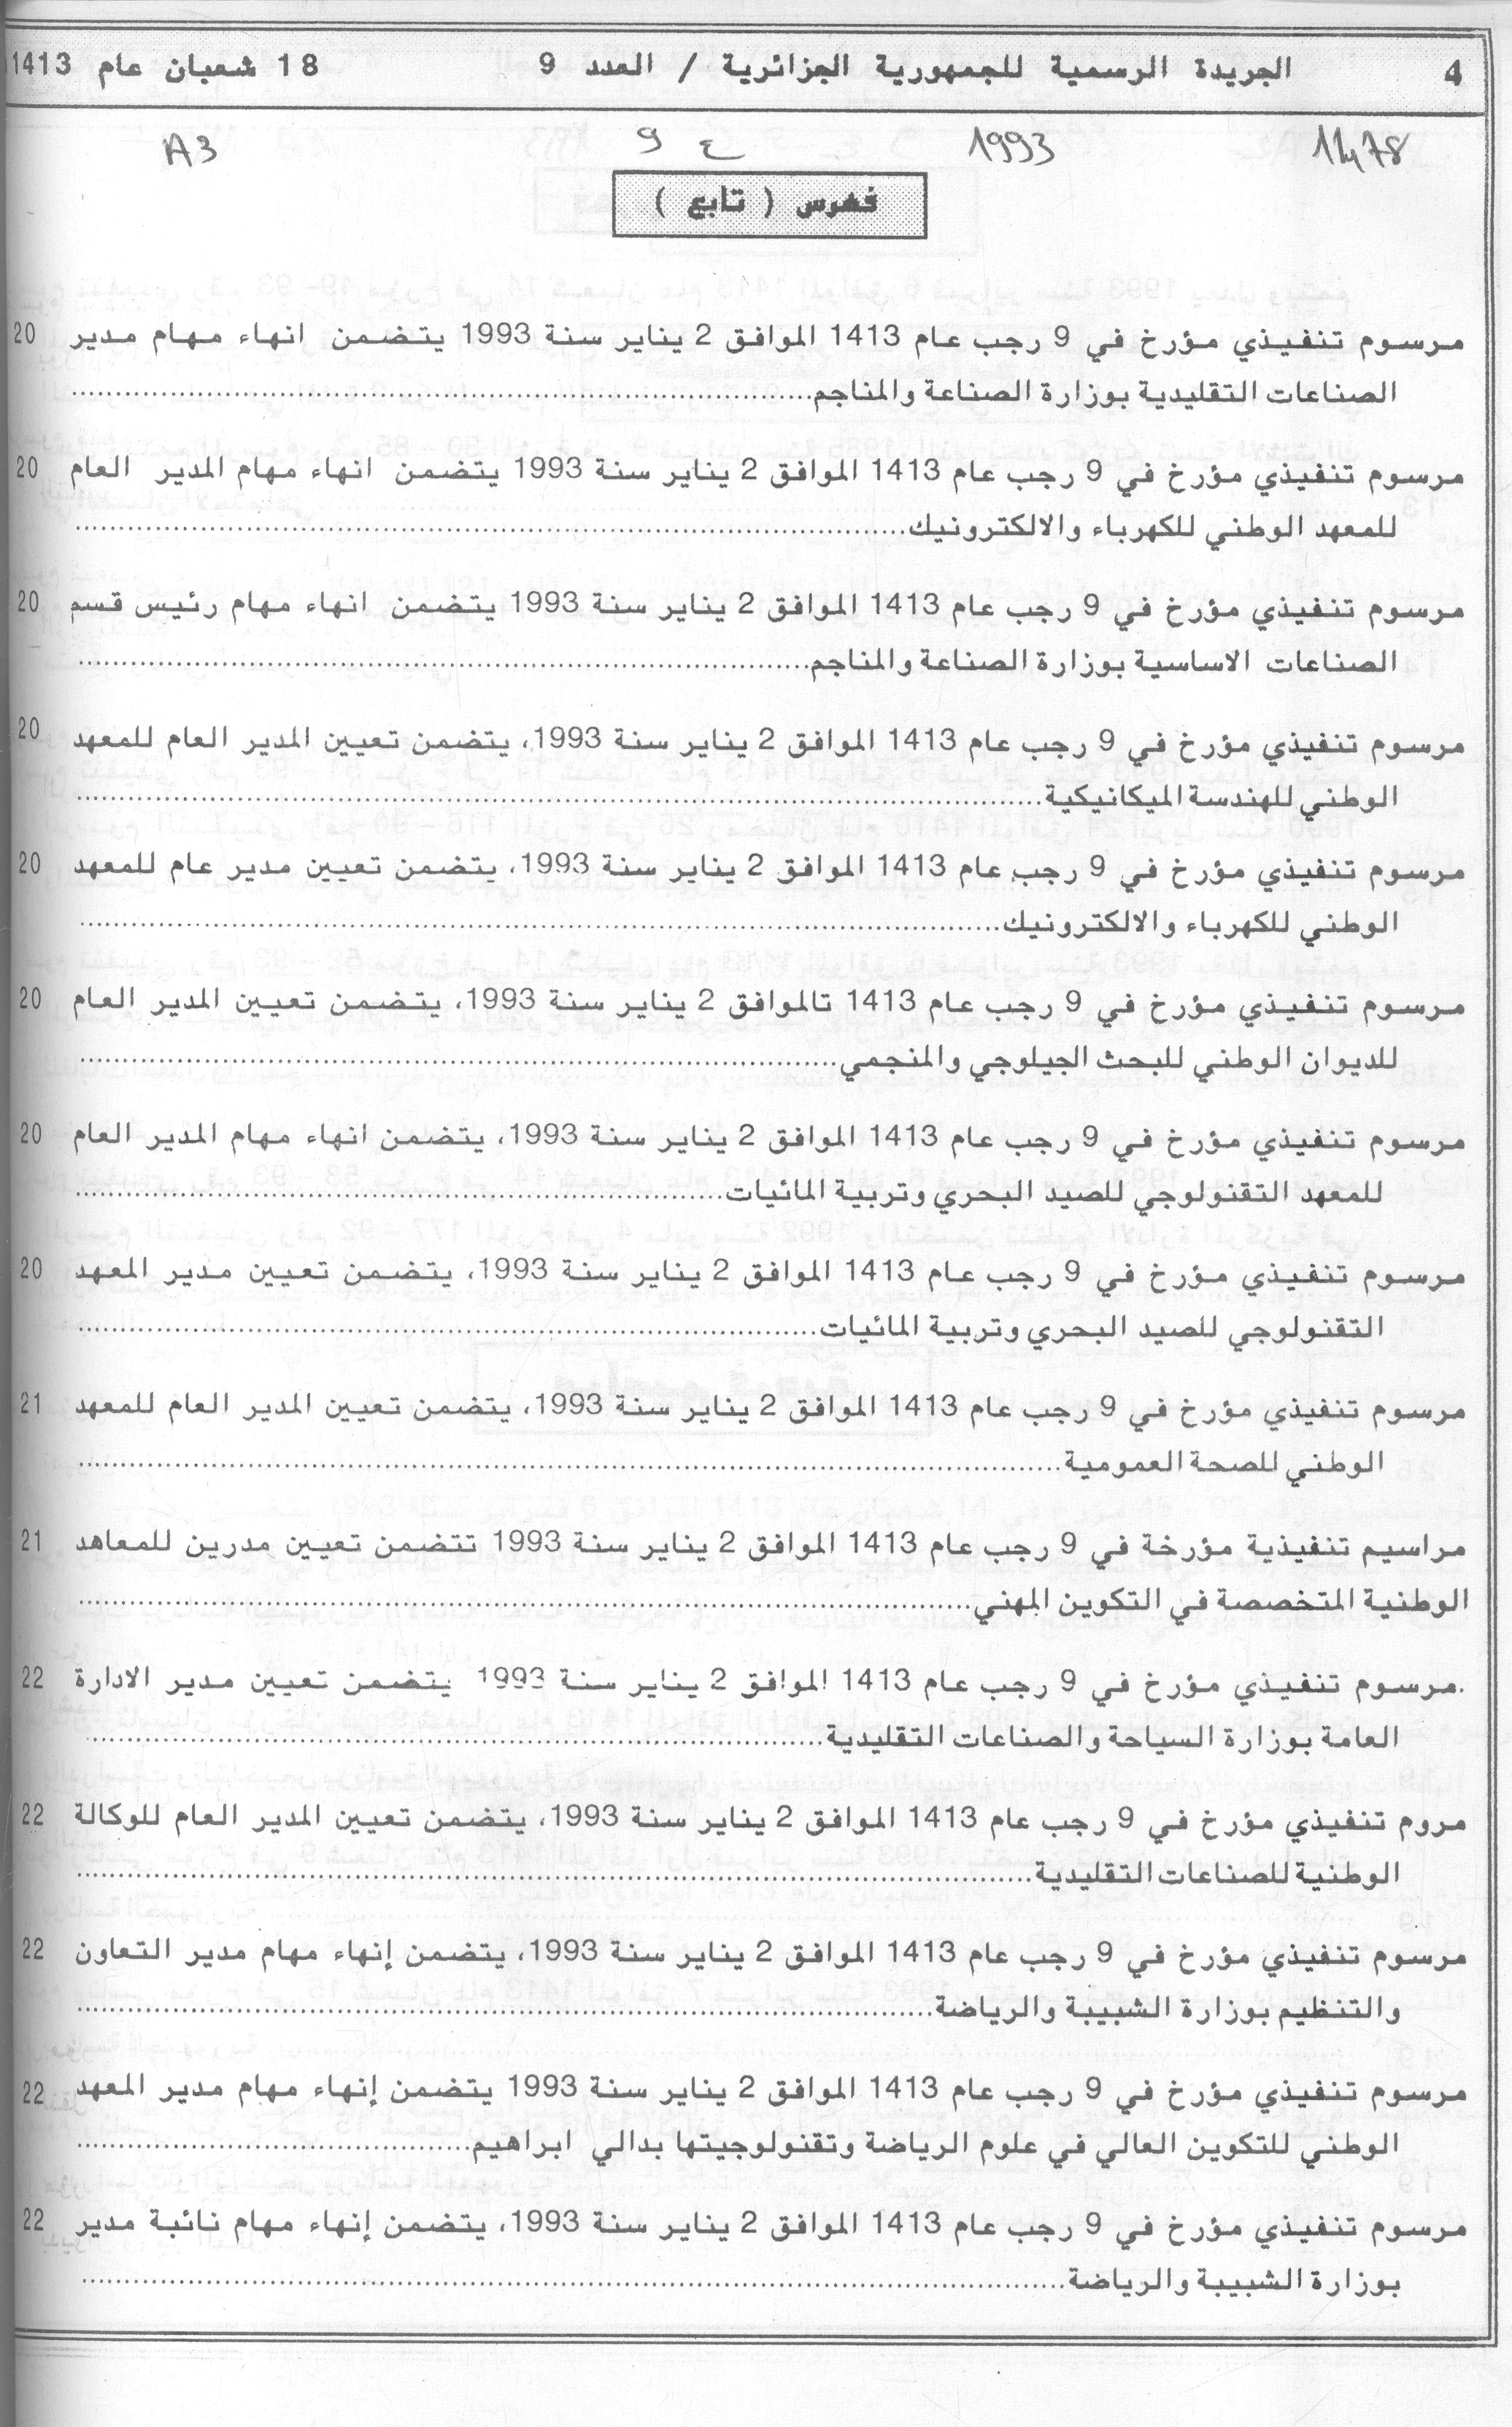 4 الجريدة الرسمية للجمهورية الجزائرية / العدد 9 18 شعبان عام 1413
1993 ع 9 A3
فهرس ( تابع )
مرسوم تنفيذي مؤرخ في 9 رجب عام 1413 الموافق 2 يناير سنة 1993 يتضمن انهاء مهام مدير 20
الصناعات التقليدية بوزارة الصناعة والمناجم
مرسوم تنفيذي مؤرخ في 9 رجب عام 1413 الموافق 2 يناير سنة 1993 يتضمن انهاء مهام المدير العام 20
للمعهد الوطني للكهرباء والالكترونيك
مرسوم تنفيذي مؤرخ في 9 رجب عام 1413 الموافق 2 يناير سنة 1993 يتضمن انهاء مهام رئيس قسم 20
الصناعات الاساسية بوزارة الصناعة والمناجم
مرسوم تنفيذي مؤرخ في 9 رجب عام 1413 الموافق 2 يناير سنة 1993، يتضمن تعيين المدير العام للمعهد 20
الوطني للهندسة الميكانيكية
مرسوم تنفيذي مؤرخ في 9 رجب عام 1413 الموافق 2 يناير سنة 1993، يتضمن تعيين مدير عام للمعهد 20
الوطني للكهرباء والالكترونيك
مرسوم تنفيذي مؤرخ في 9 رجب عام 1413 تالموافق 2 يناير سنة 1993، يتضمن تعيين المدير العام 20
للديوان الوطني للبحث الجيلوجي والمنجمي
مرسوم تنفيذي مؤرخ في 9 رجب عام 1413 الموافق 2 يناير سنة 1993، يتضمن انهاء مهام المدير العام 20
للمعهد التقنولوجي للصيد البحري وتربية المائيات
مرسوم تنفيذي مؤرخ في 9 رجب عام 1413 الموافق 2 يناير سنة 1993، يتضمن تعيين مدير المعهد 20
التقنولوجي للصيد البحري وتربية المائيات
مرسوم تنفيذي مؤرخ في 9 رجب عام 1413 الموافق 2 يناير سنة 1993، يتضمن تعيين المدير العام للمعهد 21
الوطني للصحة العمومية
مراسيم تنفيذية مؤرخة في 9 رجب عام 1413 الموافق 2 يناير سنة 1993 تتضمن تعيين مدرين للمعاهد 21
الوطنية المتخصصة في التكوين المهني
.مرسوم تنفيذي مؤرخ في 9 رجب عام 1413 الموافق 2 يناير سنة 1993 يتضمن تعيين مدير الادارة 22
العامة بوزارة السياحة والصناعات التقليدية
مروم تنفيذي مؤرخ في 9 رجب عام 1413 الموافق 2 يناير سنة 1993، يتضمن تعيين المدير العام للوكالة 22
الوطنية للصناعات التقليدية
مرسوم تنفيذي مؤرخ في 9 رجب عام 1413 الموافق 2 يناير سنة 1993، يتضمن إنهاء مهام مدير التعاون 22
والتنظيم بوزارة الشبيبة والرياضة
مرسوم تنفيذي مؤرخ في 9 رجب عام 1413 الموافق 2 يناير سنة 1993 يتضمن إنهاء مهام مدير المعهد 22
الوطني للتكوين العالي في علوم الرياضة وتقنولوجيتها بدالي ابراهيم
مرسوم تنفيذي مؤرخ في 9 رجب عام 1413 الموافق 2 يناير سنة 1993، يتضمن إنهاء مهام نائبة مدير 22
بوزارة الشبيبة والرياضة